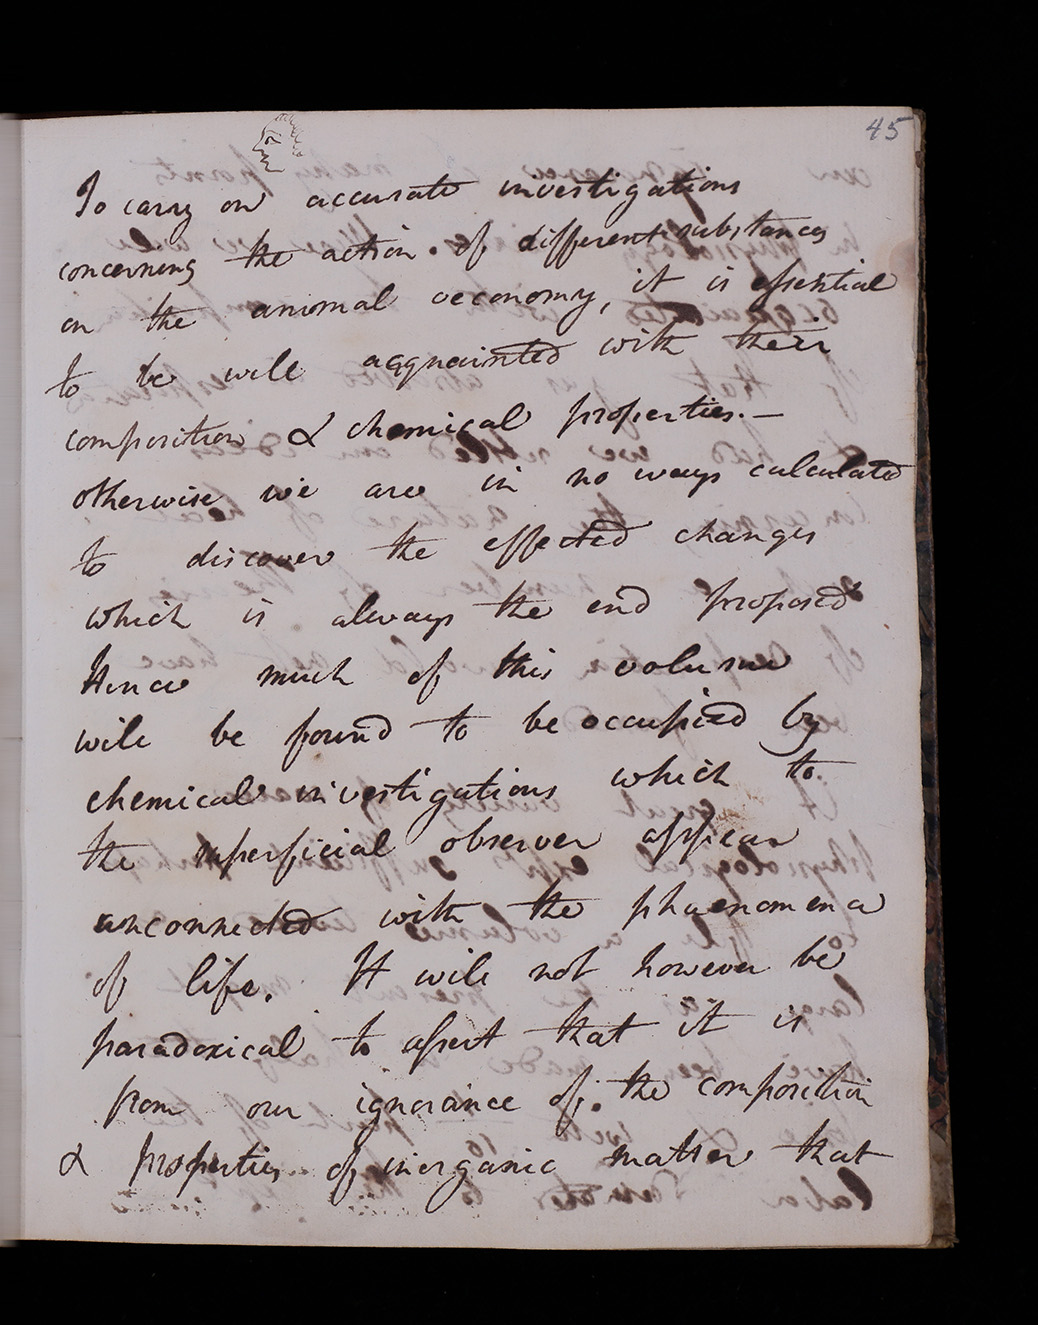 45
To carry on accurate investigations
concerning the action of different substances
on the animal oeconomy, it is essential
to be well acquainted with their
composition & chemical properties.—
otherwise we are in no ways calculated
to discover the effected changes
which is always the end proposed
Hence much of this volume
will be found to be occupied by
chemical investigations which to
the superficial observer appear
unconnected with the phaenomena
of life. It will not however be
paradoxical to assert that it is
from our ignorance of the composition
& properties of inorganic matter that